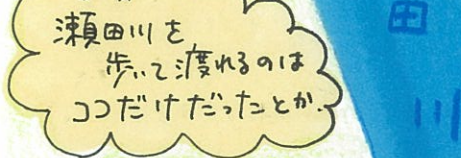 瀬田川を
歩いて渡れるのは
ココだけだったとか。
田
川